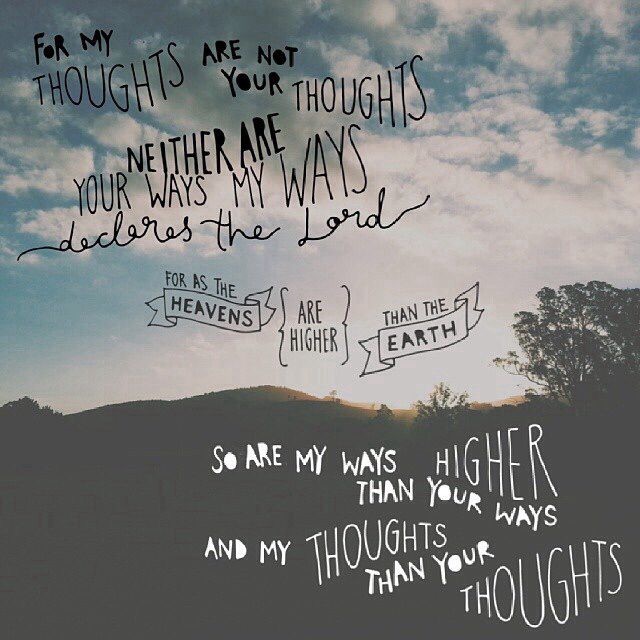 FOR MY
THOUGHTS ARE NOT
YOUR THOUGHTS
NEITHER ARE
YOUR WAYS MY WAYS
declares the Lord
FOR AS THE
HEAVENS
ARE
HIGHER
THAN THE
EARTH
SO ARE MY WAYS HIGHER
THAN YOUR WAYS
AND MY THOUGHTS
THAN YOUR
THOUGHTS